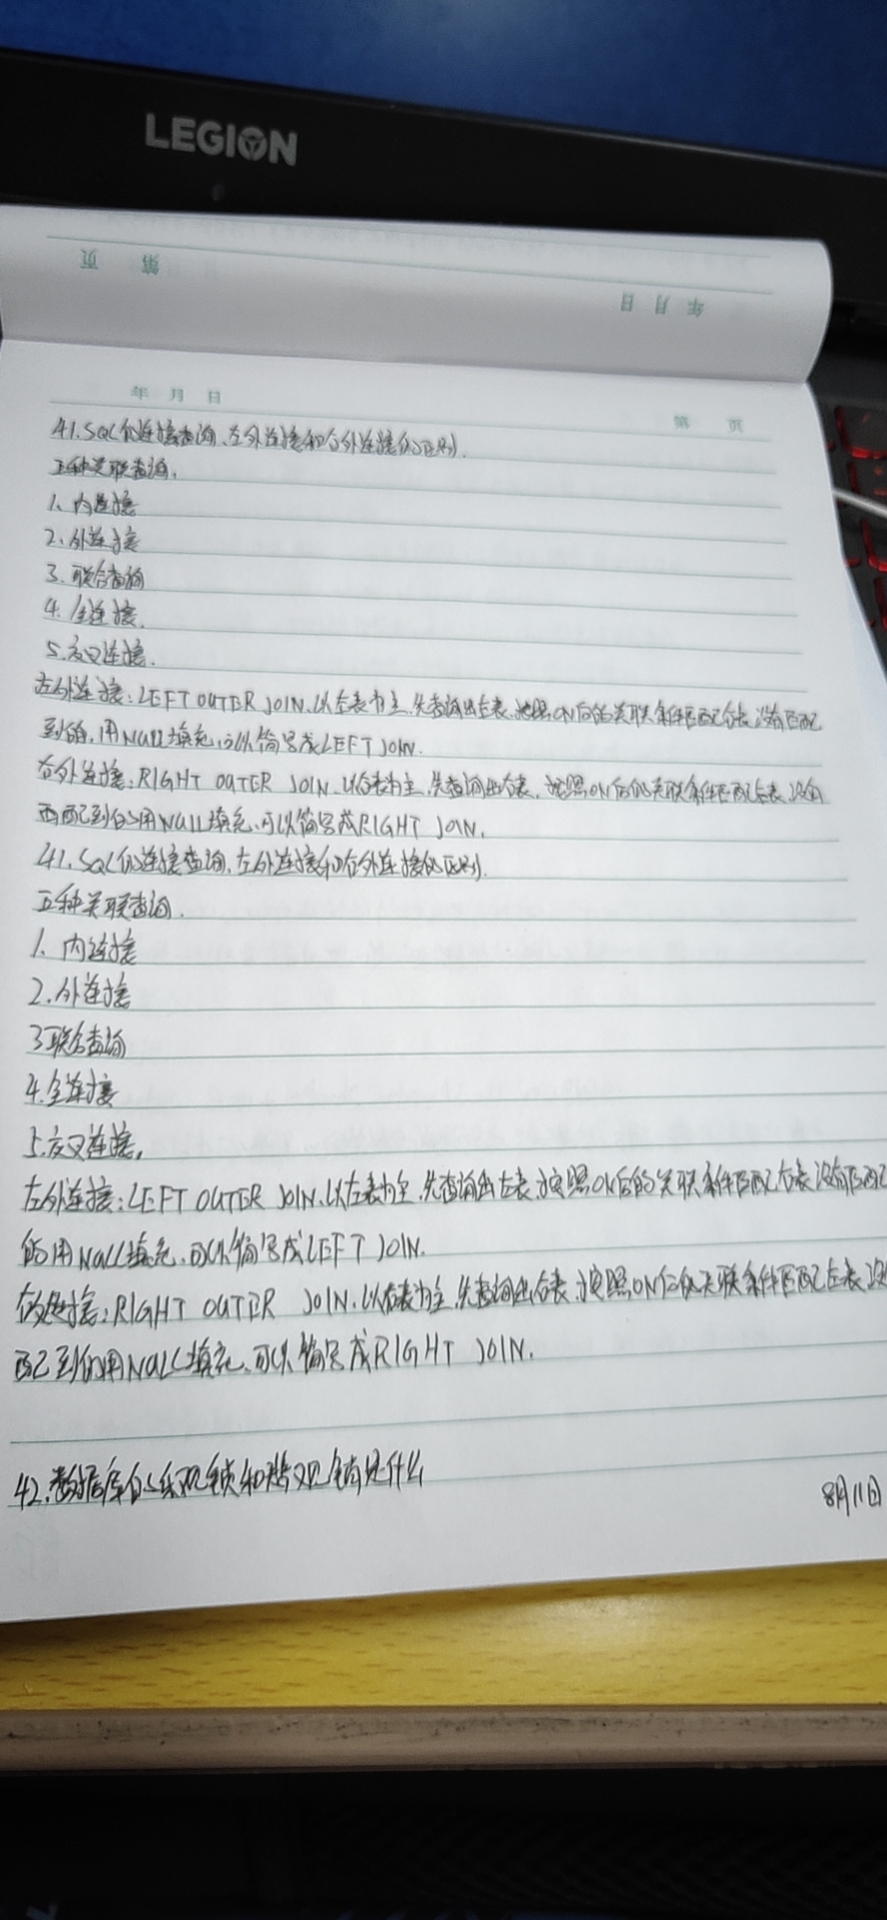 LEGION
页 第
年 月 日
年 月 日
第 页
41.SQL的连接查询、左外连接和右外连接的区别.
五种关联查询.
1. 内连接
2. 外连接
3. 联合查询
4. 全连接.
5. 交叉连接.
左外连接:LEFT OUTER JOIN.以左表为主.先查询出左表.按照ON后的关联条件匹配右表.没有匹配
到的.用NULL填充.可以简写成LEFT JOIN.
右外连接:RIGHT OUTER JOIN.以右表为主.先查询出右表.按照ON后的关联条件匹配左表.没有
匹配到的用NULL填充.可以简写成RIGHT JOIN.
41.SQL的连接查询.左外连接和右外连接的区别.
五种关联查询.
1. 内连接
2.外连接
3联合查询
4.全连接
5.交叉连接.
左外连接:LEFT OUTER JOIN.以左表为主.先查询出左表.按照ON后的关联条件匹配右表没有匹配
的用NULL填充.可以简写成LEFT JOIN.
右外连接:RIGHT OUTER JOIN.以右表为主.先查询出右表.按照ON后的关联条件匹配左表.没
配到的用NULL填充.可以简写成RIGHT JOIN.
42.数据库的乐观锁和悲观锁是什么
8月11日